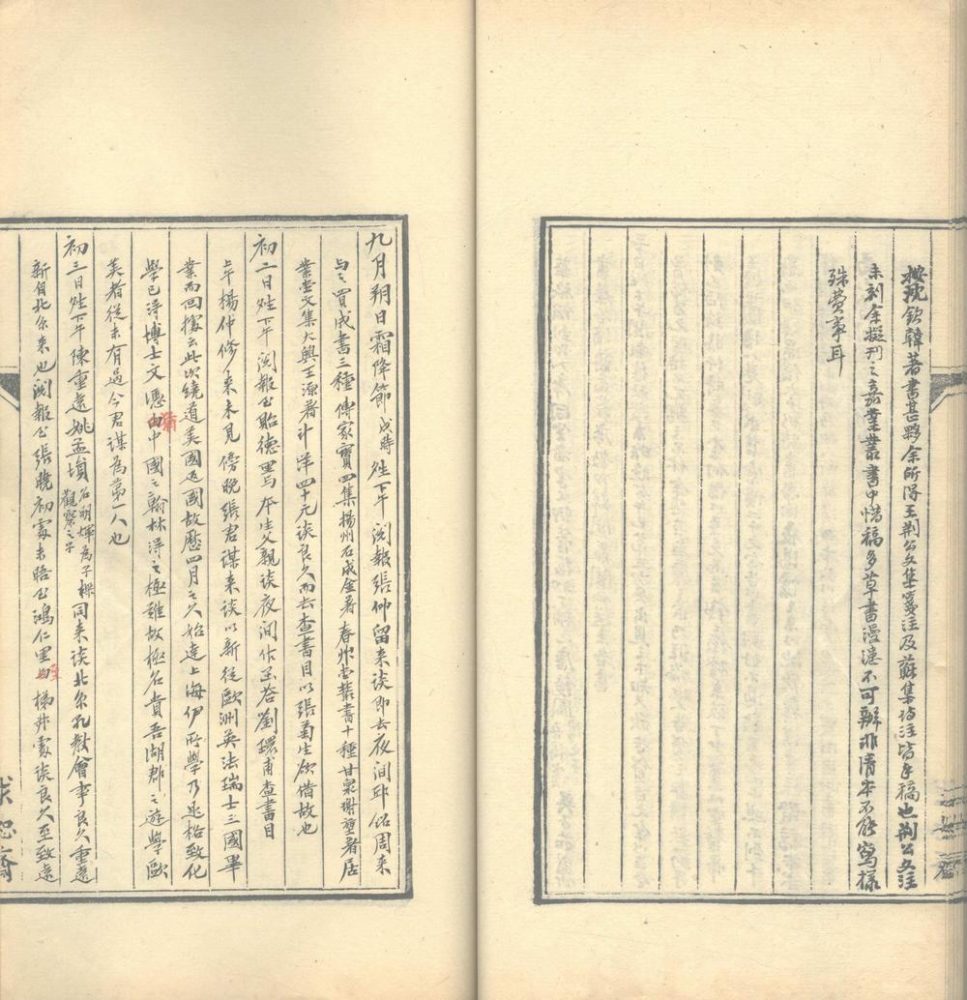 按沈欽韓著書甚夥余所得王荊公文集箋注及蘇集皆注皆手稿也荊公文注
未刻余擬刊之嘉業叢書中惜稿多草書漫漶不可辨非清本不能寫樣
殊費事耳
九月朔日霜降節戌時 陰下午閱報張仲留來談即去夜間邱紹周來
與之買成書三種傳家寶四集揚州石成金著春水堂叢書十種甘泉謝堃著居
業堂文集大興王源著計洋四十元談良久而去查書目以張菊生欲借故也
初二日陰下午閱報公貽德寫與本生父親談夜間作函答劉環甫查書目
上午楊仲修來未見傍晚張君謀來談以新從歐洲英法瑞士三國畢
業而回據云此次繞道美國返國故歷四月之久始達上海伊所學乃是格致化
學已得博士文憑猶中國之翰林得之極難故極名貴吾湖郡之遊學歐
美者從未有過今君謀為第一人也
初三日陰下午陳重遠姚孟塤名明煇為子樑觀察之子同來談北京孔教會事良久重遠
新自北京來也閱報公張曉初處未晤公鴻仁里至梯升處談良久至致遠
求恕齋